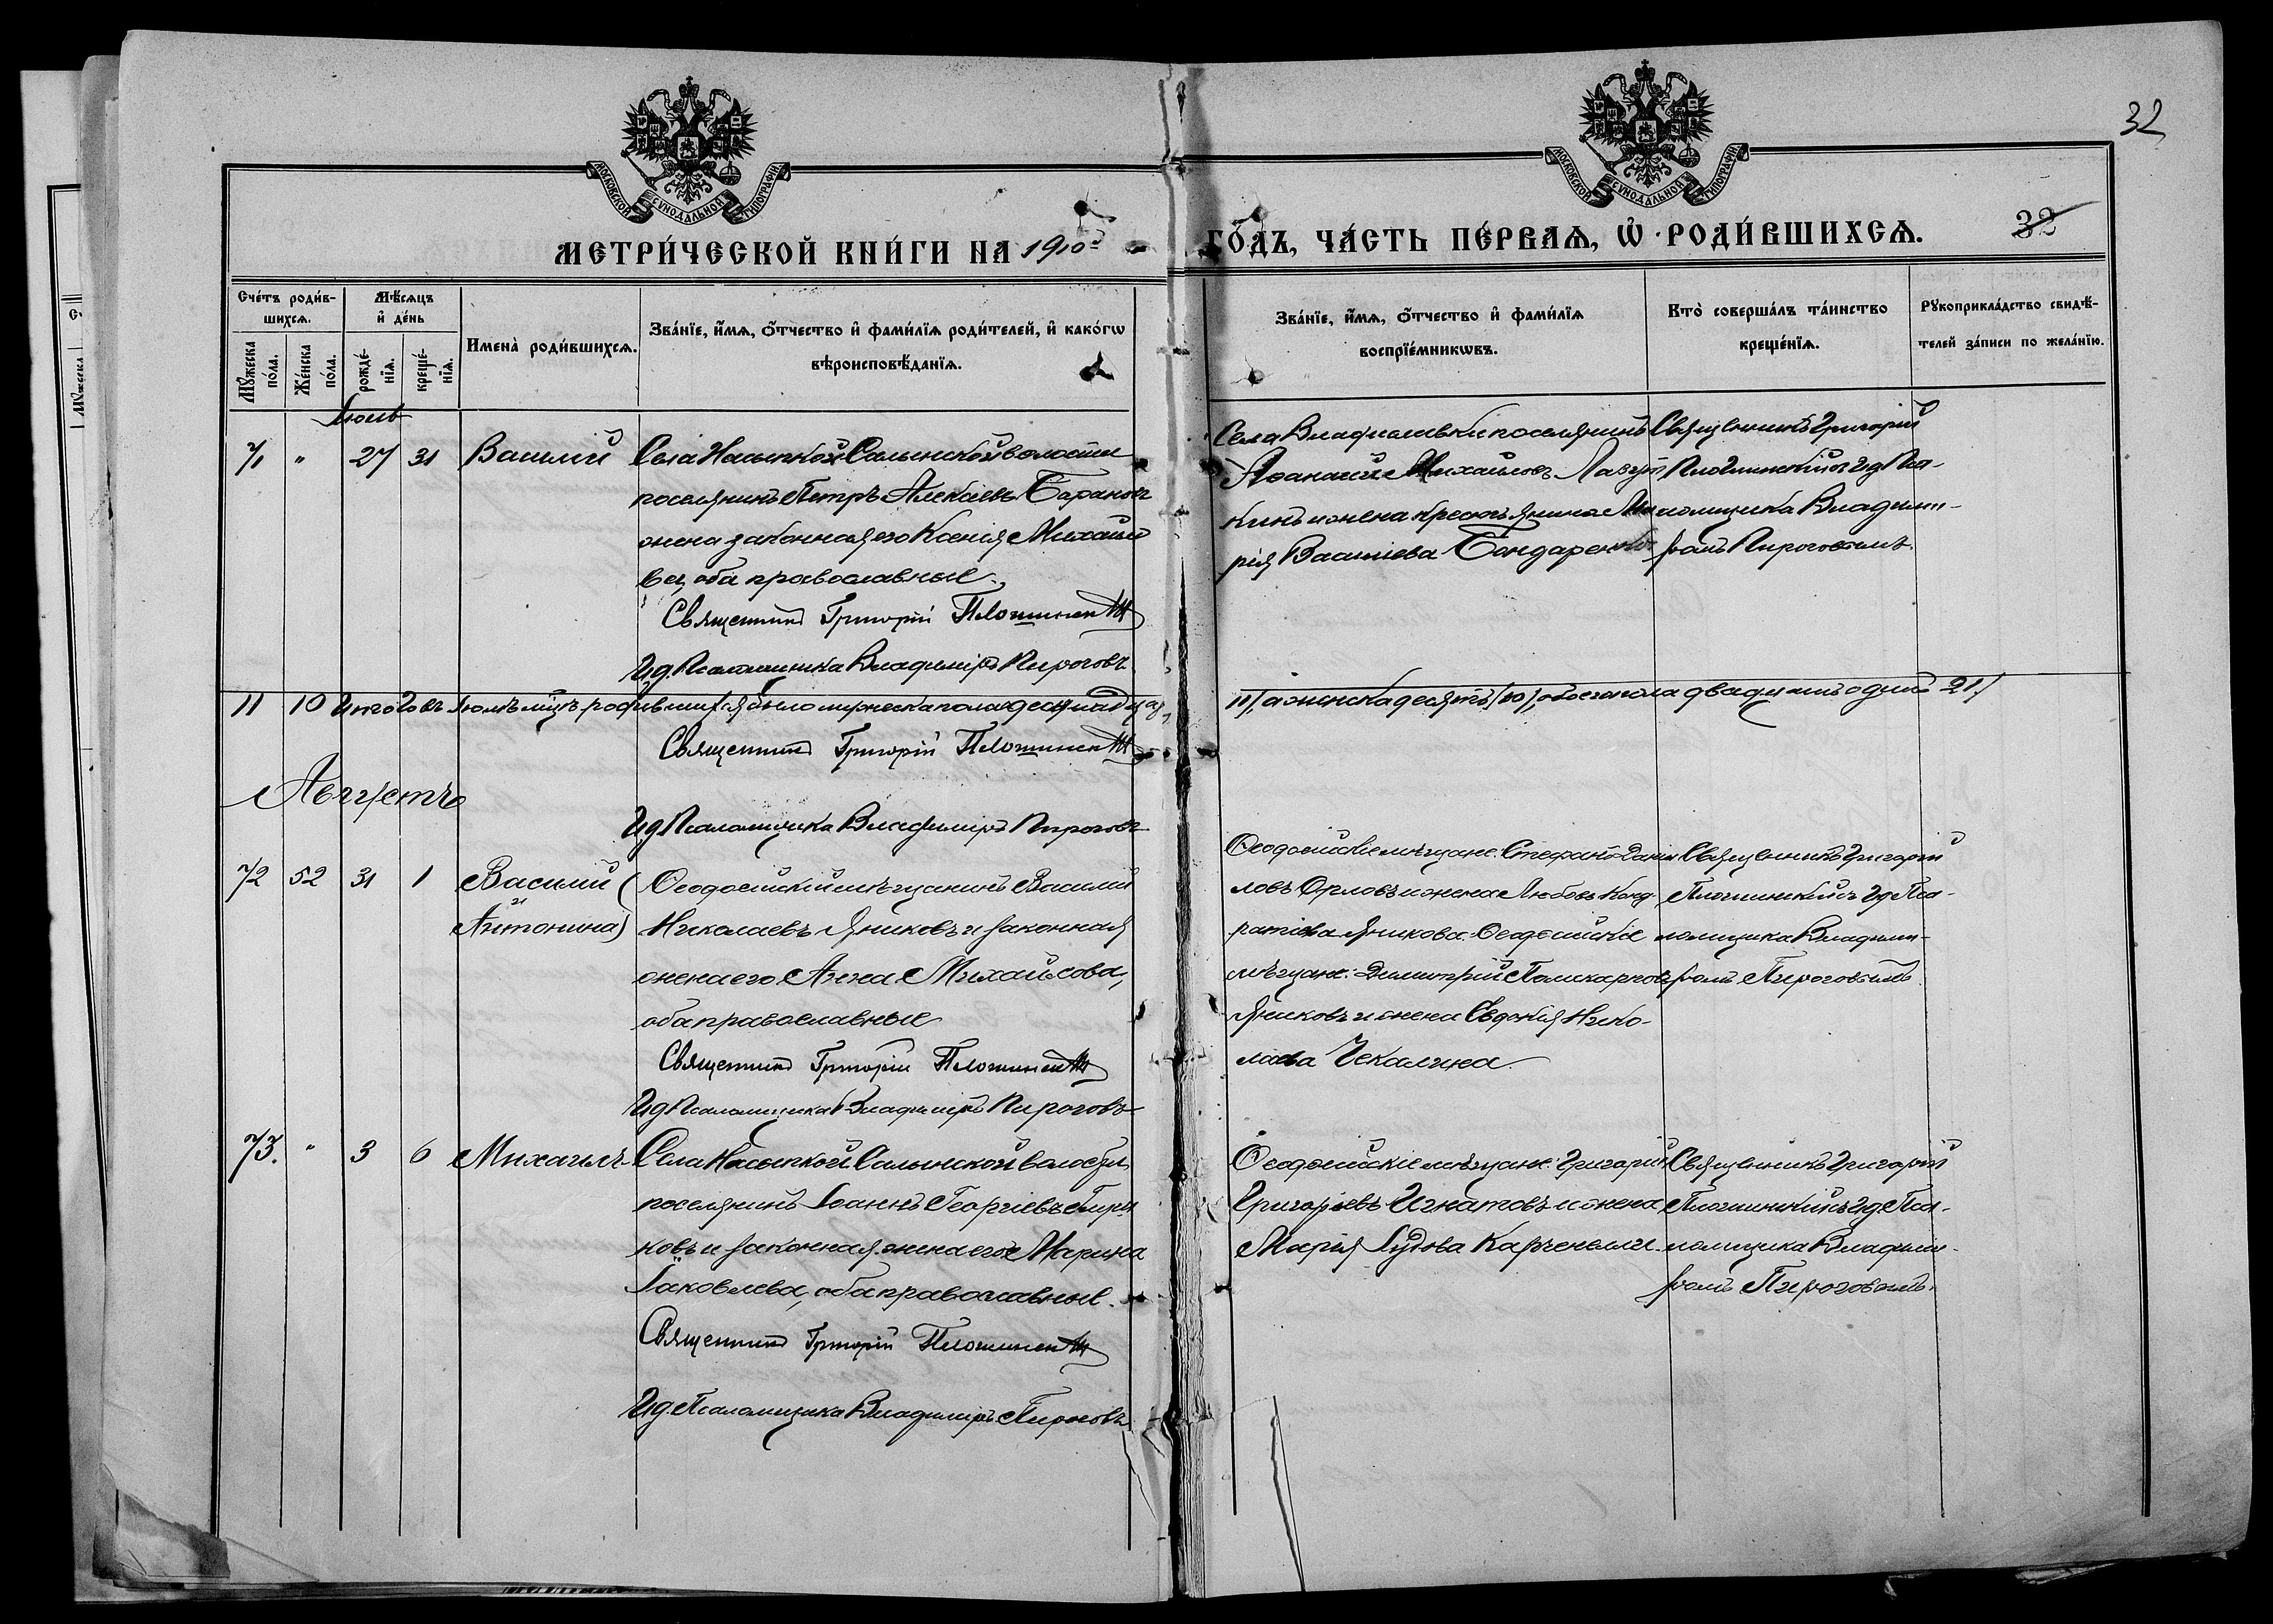 32
МОСКОВСКОЙ СѴНОДАЛЬНОЙ ТИПОГРАФІИ
МОСКОВСКОЙ СѴНОДАЛЬНОЙ ТИПОГРАФІИ
МЕТРИ́ЧЕСКОЙ КНИ́ГИ НА 1910 й
ГО́ДЪ, ЧА́СТЬ ПЕ́РВАѦ, Ѡ РОДИ́ВШИХСѦ.
32
Сче́тъ роди́в-
шихсѧ.
Мꙋ́жеска
по́ла.
Же́нска
по́ла.
Мѣ́сѧцъ
и҆ де́нь
рожде́-
нїѧ.
креще́-
нїѧ.
Имена̀ роди́вшихсѧ.
Зва́нїе, и҆́мѧ, ѻ҆́тчество и҆ фами́лїѧ роди́телей, и҆ како́гѡ
вѣроисповѣ́данїѧ.
Зва́нїе, и҆́мѧ, ѻ҆́тчество и҆ фами́лїѧ
воспрїе́мникѡвъ.
Кто̀ соверша́лъ та́инство
креще́нїѧ.
Рꙋкоприкла́дство свидѣ́-
телей за́писи по жела́нїю.
Іюль
71 " 27 31 Василій
Села Насыпкой Салынской волости
поселянинъ Петръ Алексѣевъ Барановъ
и жена законная его Ксенія Михайло
ва, оба православные.
Священникъ Григорій Плотинскій
И.д. Псаломщика Владиміръ Пироговъ
Села Владиславовки поселянинъ
Аѳанасій Михайловъ Лазут
кинъ и жена крестьянина Ма
рія Васильева Бондаренкова
Священникъ Григорій
Плотинскій съ И.д. Пса-
ломщика Владими-
ромъ Пироговымъ.
11 10 Итого въ Іюлѣ мцѣ родившихся было мужеска пола одеснадцать
11), а женска десять (10), обоего пола двадцать одинъ 21)
Священникъ Григорій Плотинскій
И.д. Псаломщика Владиміръ Пироговъ
Августъ
72 52 31 1 Василій (
и
Антонина)
Ѳеодосійскій мѣщанинъ Василій
Николаевъ Яниковъ и законная
жена его Анна Михайлова,
оба православные
Священникъ Григорій Плотинскій
И.д. Псаломщика Владиміръ Пироговъ
Ѳеодосійскіе мѣщане: Стефанъ Дании
ловъ Орловъ и жена Любовь Конд
ратіева Яникова. Ѳеодосійскіе
мѣщане: Димитрій Поликарповъ
Яниковъ и жена Евдокія Нико-
лаева Чекалина.
Священникъ Григорій
Плотинскій съ И.д. Пса-
ломщика Владими-
ромъ Пироговымъ
73. " 3 6 Михаилъ
Села Насыпкой Салынской волости,
поселянинъ Іоаннъ Георгіевъ
ковъ и законная жена его Марина
Іаковлева, оба православные.
Священникъ Григорій Плотинскій
И.д. Псаломщика Владиміръ Пироговъ
Ѳеодосійскіе мѣщане: Григорій
Григорьевъ Игнатовъ и жена
Марія
Священникъ Григорій
Плотинскій съ И.д. Пса-
ломщика Владими-
ромъ Пироговымъ.